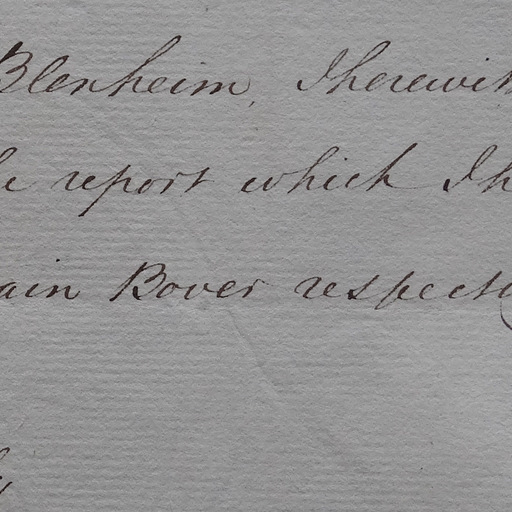 Blenheim, I herewith
report which I h
ain Bover respecti